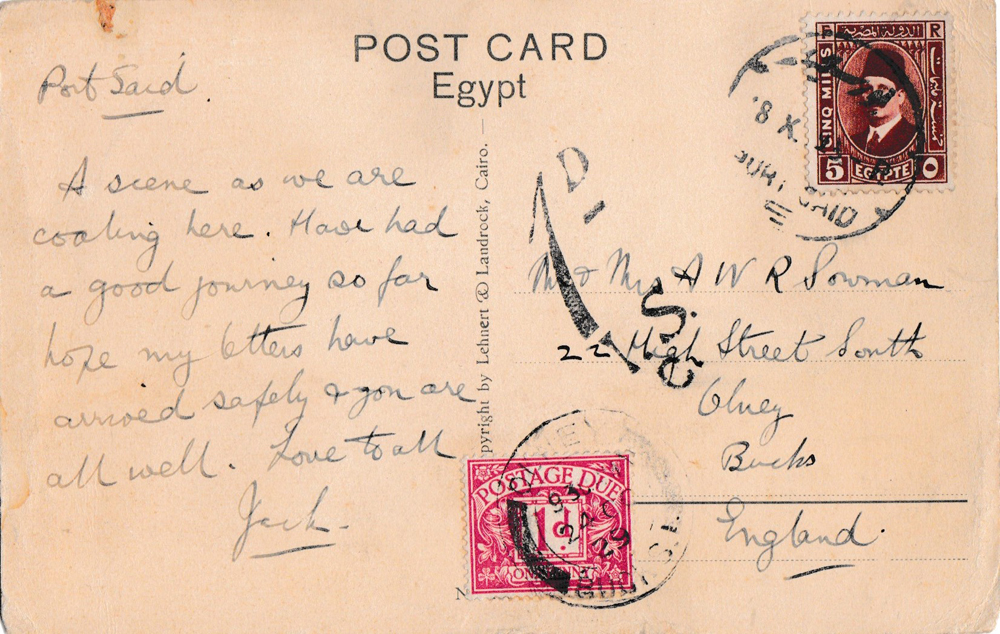 POST CARD
Egypt
Port Said
A scene as we are
coaling here. Have had
a good journey so far
hope my letters have
arrived safely & you are
all well. Love to all
Jack.
pyright by Lehnert & Landrock, Cairo.
Mr & Mrs A W R Sowman
22 High Street South
Olney
Bucks
England.
F R
الدولة المصرية
CINQ MILLS
5 EGYPTE ٥
PORT SAID
POSTAGE DUE
1d
ONE PENNY